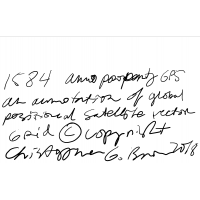 1584 anno property GPS
an annotation of global
positional satellite vector
Grid © copyright
Christopher G. Brown 2018